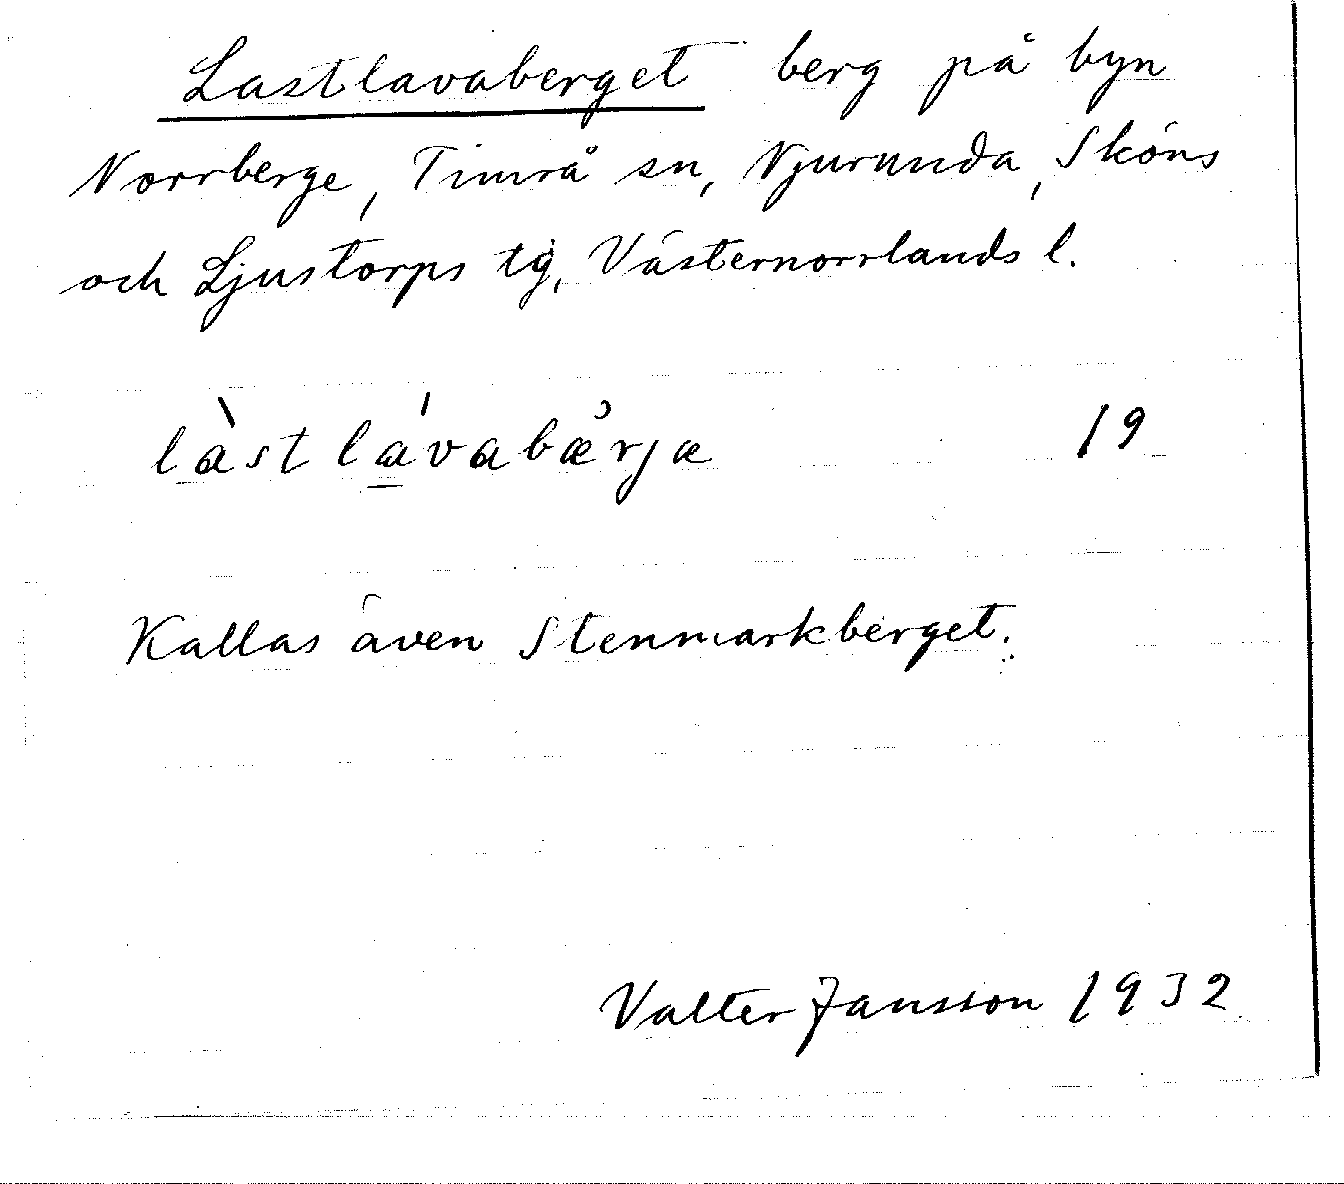 Lastlavaberget berg på byn
Norrberge, Timrå sn, Njurunda, Sköns
och Ljustorps tg, Västernorrlands l.
làst lávabærjæ 19
Kallas även Stenmarkberget.
Valter Jansson 1932